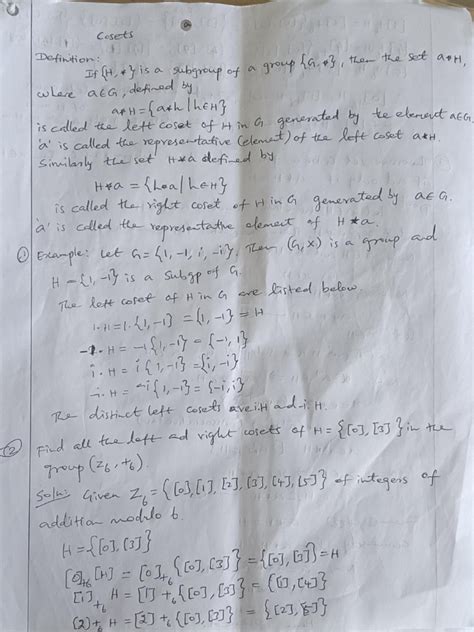 Cosets
Definition:
If {H, *} is a subgroup of a group {G, *}, then the set a*H,
where a∈G, defined by
a*H = {a*h | h∈H}
is called the left coset of H in G generated by the element a∈G.
'a' is called the representative (element) of the left coset a*H.
Similarly the set H*a defined by
H*a = {h*a | h∈H}
is called the right coset of H in G generated by a∈G.
'a' is called the representative element of H*a.
① Example: Let G = {1, -1, i, -i}. Then (G, x) is a group and
H = {1, -1} is a Subgp of G.
The left coset of H in G are listed below.
1.H = 1.{1, -1} = {1, -1} = H
-1.H = -1{1, -1} = {-1, 1}
i.H = i{1, -1} = {i, -i}
-i.H = -i{1, -1} = {-i, i}
The distinct left cosets are i.H and -i.H.
② Find all the left ad right cosets of H = {[0], [3]} in the
group (Z₆, +₆).
Soln: Given Z₆ = {[0], [1], [2], [3], [4], [5]} of integers of
addition modulo 6.
H = {[0], [3]}
[0]+₆[H] = [0]+₆{[0], [3]} = {[0], [3]} = H
[1]+₆ H = [1]+₆{[0], [3]} = {[1], [4]}
[2]+₆ H = [2]+₆{[0], [3]} = {[2], [5]}